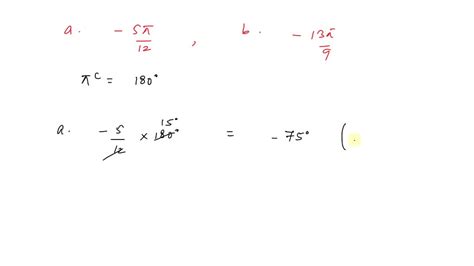 a. - 5π/12 , b. - 13π/9
π^c = 180°
a. - 5/12 × 180° 15° = - 75° (